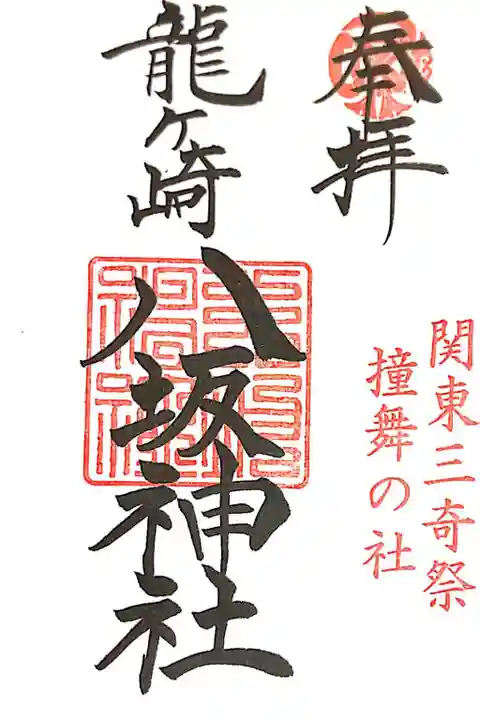 奉拝
関東三奇祭
撞舞の社
龍ヶ崎
八坂神社